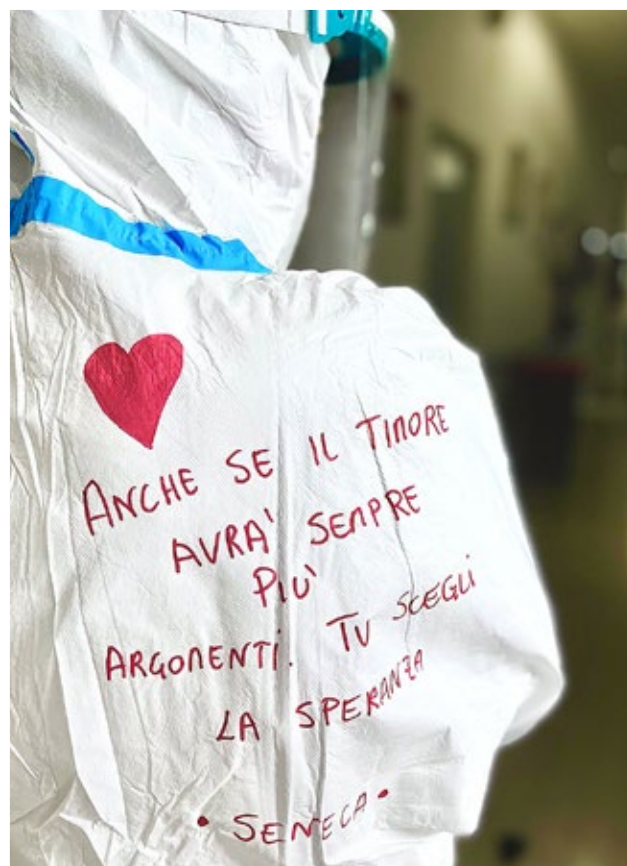 ANCHE SE IL TIMORE
AVRA' SEMPRE
PIU'
ARGOMENTI. TU SCEGLI
LA SPERANZA
• SENECA •